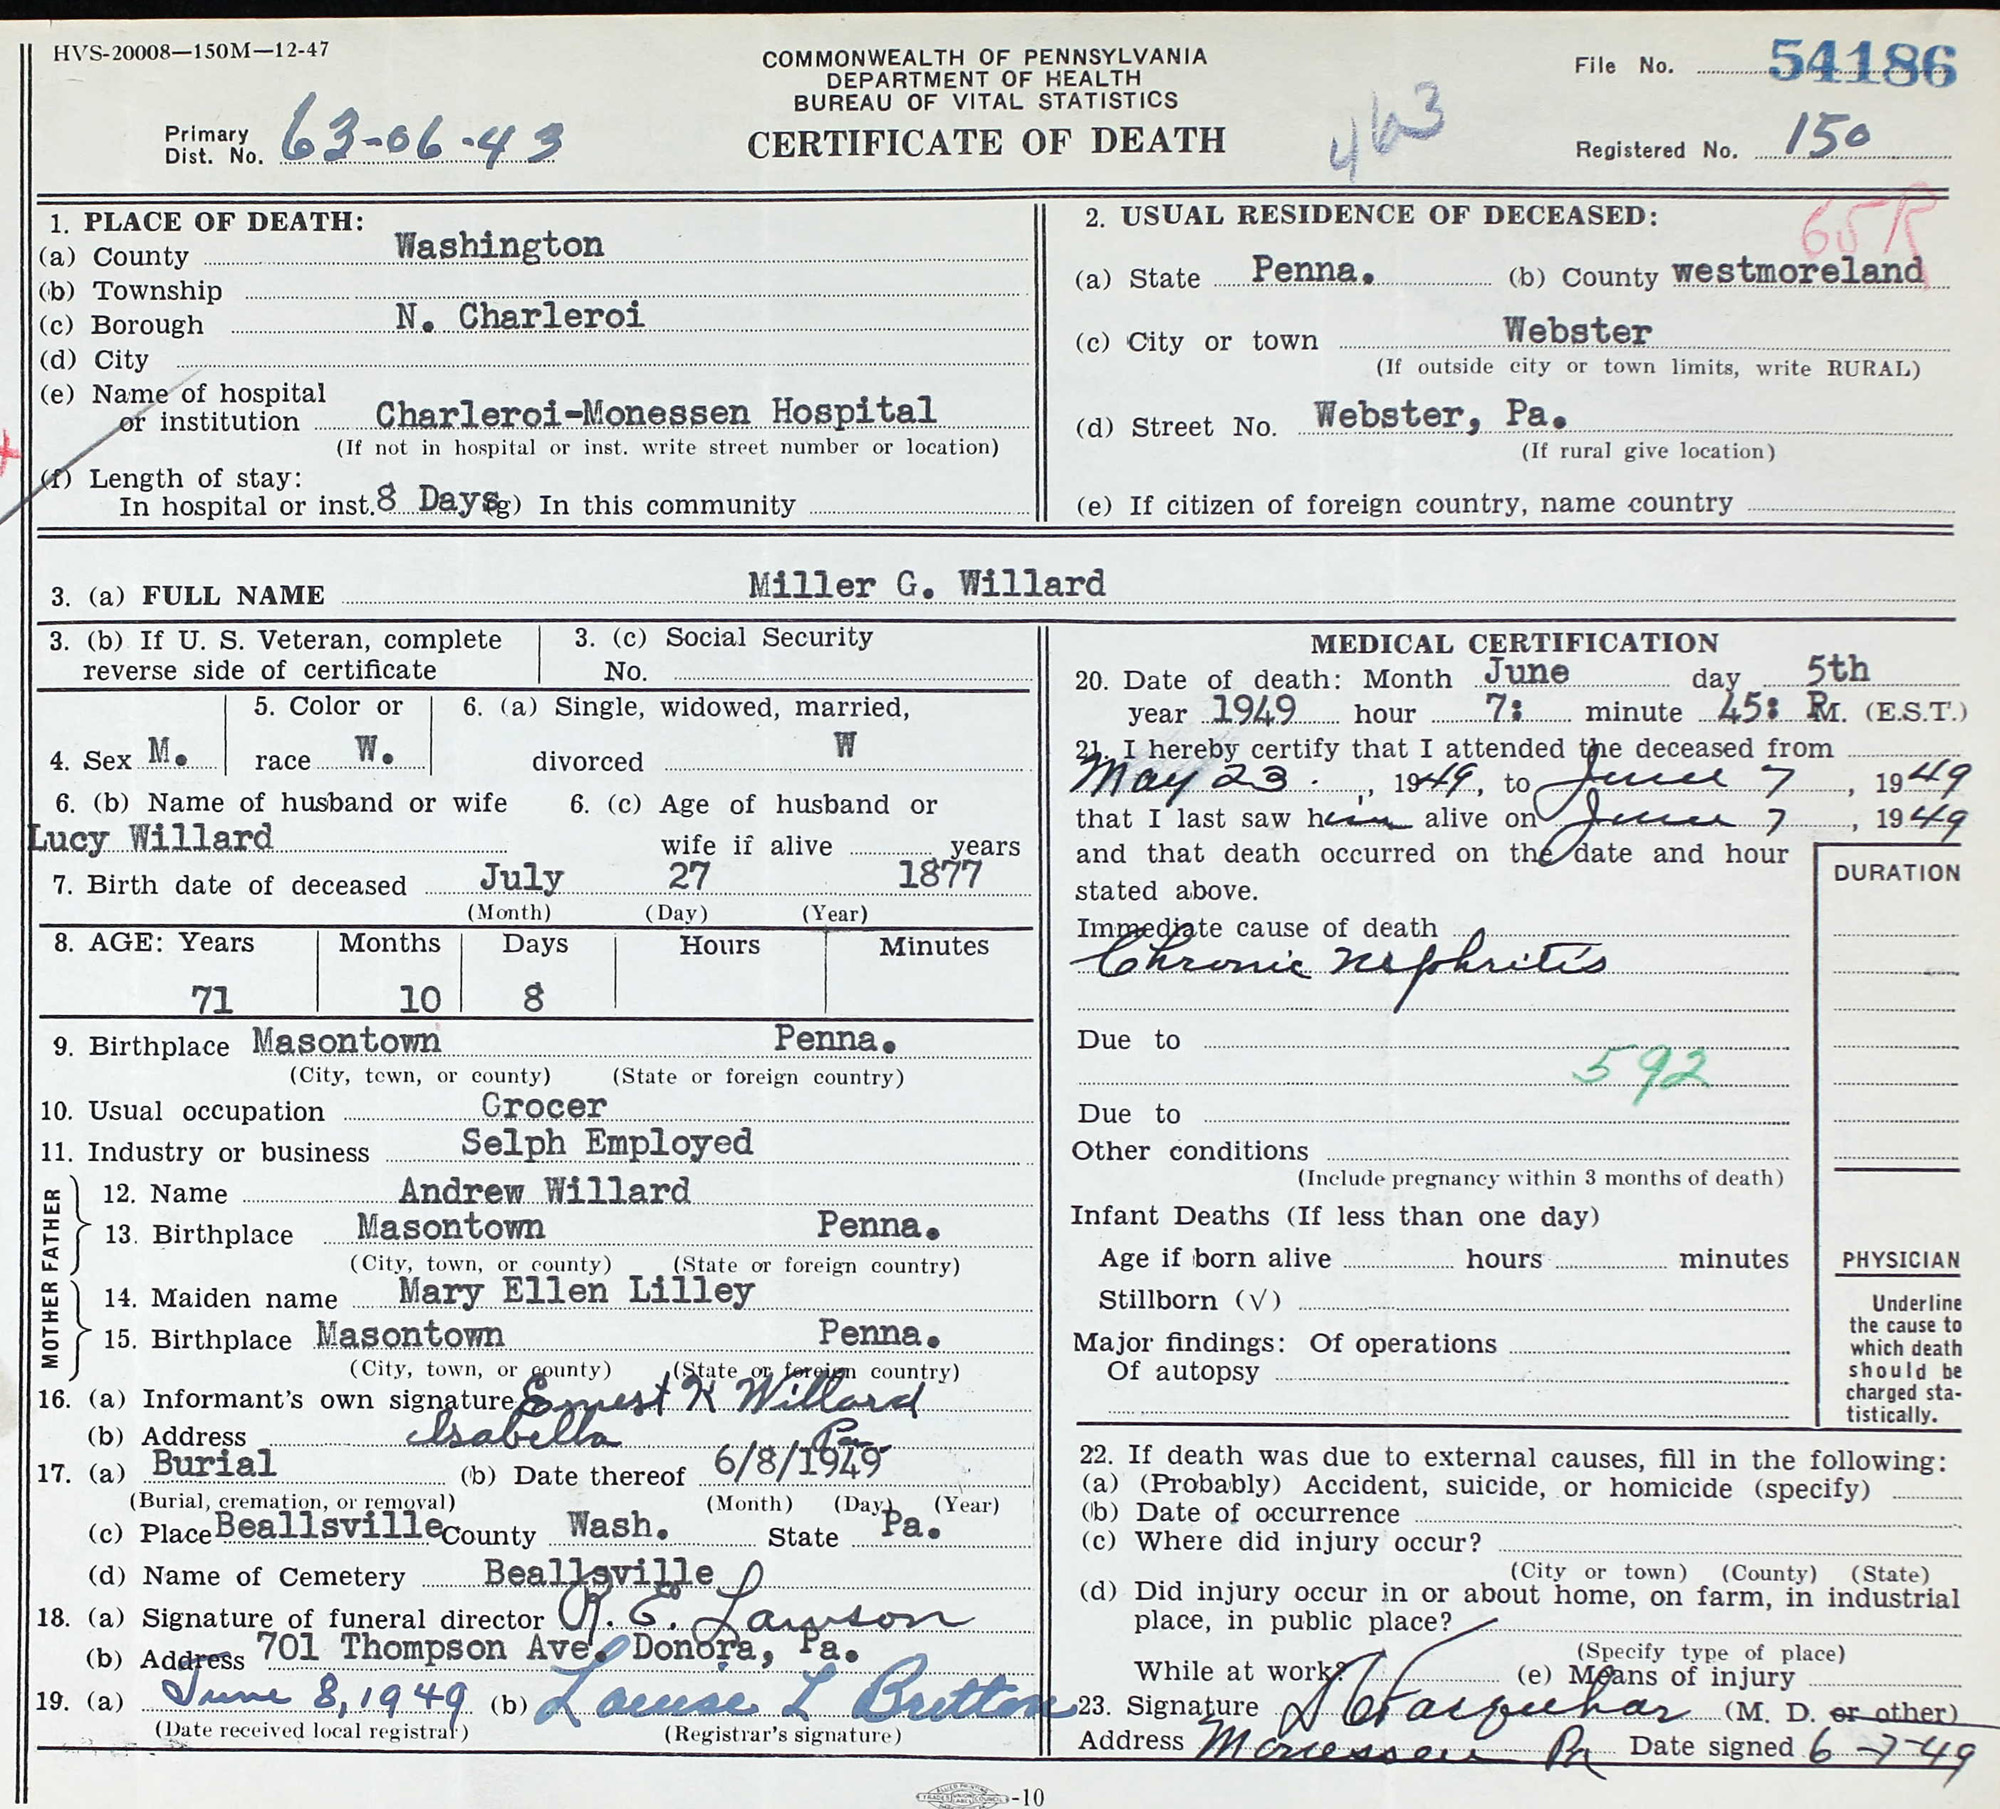 HVS-20008—150M—12-47
COMMONWEALTH OF PENNSYLVANIA
DEPARTMENT OF HEALTH
BUREAU OF VITAL STATISTICS
CERTIFICATE OF DEATH
463
File No. 54186
Primary
Dist. No. 63-06-43
Registered No. 150
1. PLACE OF DEATH:
(a) County Washington
(b) Township
(c) Borough N. Charleroi
(d) City
(e) Name of hospital
or institution Charleroi-Monessen Hospital
(If not in hospital or inst. write street number or location)
(f) Length of stay:
In hospital or inst. 8 Days (g) In this community
2. USUAL RESIDENCE OF DECEASED:
65
(a) State Penna. (b) County westmoreland
(c) City or town Webster
(If outside city or town limits, write RURAL)
(d) Street No. Webster, Pa.
(If rural give location)
(e) If citizen of foreign country, name country
3. (a) FULL NAME Miller G. Willard
3. (b) If U. S. Veteran, complete
reverse side of certificate
3. (c) Social Security
No.
4. Sex M.
5. Color or
race W.
6. (a) Single, widowed, married,
divorced W
6. (b) Name of husband or wife
Lucy Willard
6. (c) Age of husband or
wife if alive years
7. Birth date of deceased July 27 1877
(Month) (Day) (Year)
8. AGE: Years Months Days Hours Minutes
71 10 8
9. Birthplace Masontown Penna.
(City, town, or county) (State or foreign country)
10. Usual occupation Grocer
11. Industry or business Selph Employed
FATHER
12. Name Andrew Willard
13. Birthplace Masontown Penna.
(City, town, or county) (State or foreign country)
MOTHER
14. Maiden name Mary Ellen Lilley
15. Birthplace Masontown Penna.
(City, town, or county) (State or foreign country)
16. (a) Informant's own signature Ernest K Willard
(b) Address Isabella Pa
17. (a) Burial (b) Date thereof 6/8/1949
(Burial, cremation, or removal) (Month) (Day) (Year)
(c) Place Beallsville County Wash. State Pa.
(d) Name of Cemetery Beallsville
18. (a) Signature of funeral director R. E. Lawson
(b) Address 701 Thompson Ave. Donora, Pa.
19. (a) June 8, 1949 (b) Louise L Britton
(Date received local registrar) (Registrar's signature)
MEDICAL CERTIFICATION
20. Date of death: Month June day 5th
year 1949 hour 7: minute 45: P.M. (E.S.T.)
21. I hereby certify that I attended the deceased from
May 23, 1949, to June 7, 1949
that I last saw him alive on June 7, 1949
and that death occurred on the date and hour
stated above.
DURATION
Immediate cause of death
Chronic nephritis
Due to
592
Due to
Other conditions
(Include pregnancy within 3 months of death)
Infant Deaths (If less than one day)
Age if born alive hours minutes
Stillborn (√)
Major findings: Of operations
Of autopsy
PHYSICIAN
Underline
the cause to
which death
should be
charged sta-
tistically.
22. If death was due to external causes, fill in the following:
(a) (Probably) Accident, suicide, or homicide (specify)
(b) Date of occurrence
(c) Where did injury occur?
(City or town) (County) (State)
(d) Did injury occur in or about home, on farm, in industrial
place, in public place?
(Specify type of place)
While at work? (e) Means of injury
23. Signature Farquhar (M. D. or other)
Address Monessen Pa Date signed 6-7-49
-10